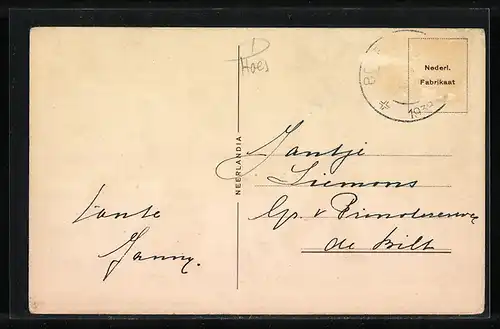 Hoes
Nederl.
Fabrikaat
193
NEERLANDIA
Jantje
Siemons
Gr. v
de Bilt
Tante
Janny.